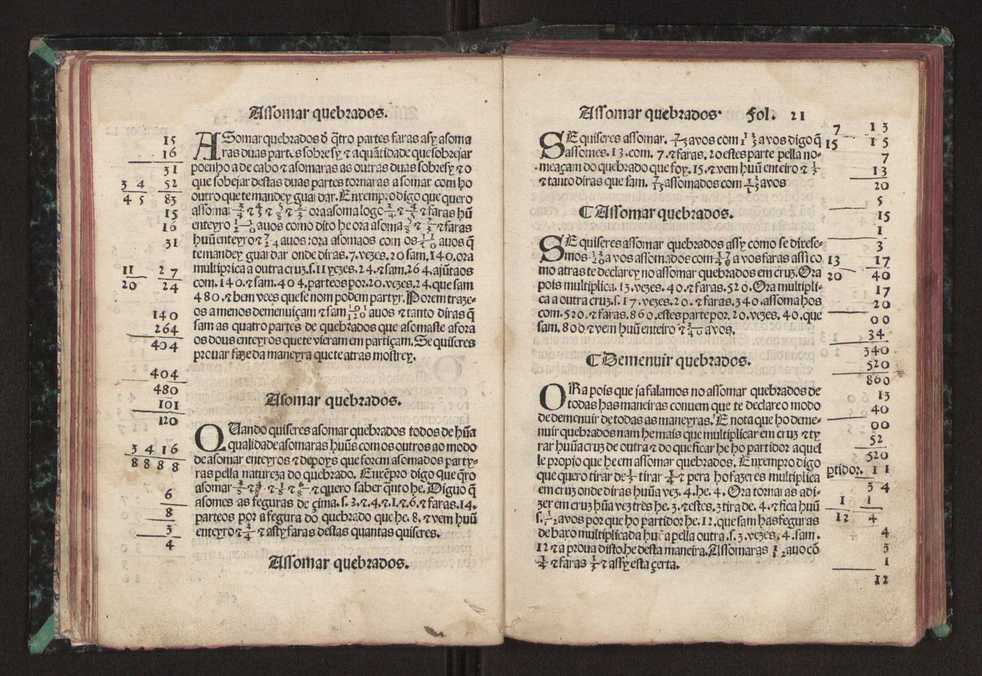 Assomar quebrados.
ASomar quebrados d̃ q̃tro partes faras assy asoma
ras duas partes sobresy ⁊ a quãtidade que sobejar
poenho a de cabo ⁊ asomaras as outras duas sobresy ⁊ o
que sobejar dessas duas partes tornaras a somar com ho
outro que te mandey guardar. Enxempro digo que quero
assomar 3/4 ⁊ 4/5 ora asoma logo ⁊ faras hũ
enteyro avos como dito he ora asoma ⁊ faras
huũ enteyro ⁊ 7/24 avos ora asomaos com os 11/20 avos q̃
te mandey guardar onde diras. 7. vezes. 20 sam. 140. ora
multiprica a outra cruz. s. 11 vezes. 24. ⁊ sam. 264. ajũtaos
com. 140. ⁊ sam. 404. parteos por. 20. vezes. 24. que sam
480. ⁊ bem vees que se nom podem partyr. Porem traze-
os a menos demenuiçam ⁊ sam 101/120 avos ⁊ tanto diras q̃
sam as quatro partes de quebrados que asomaste afora
os dous enteyros que te vieram em partiçam. Se quiseres
provar faze da maneyra que te atras mostrey.
Asomar quebrados.
QUando quiseres asomar quebrados todos de hũa
qualidade asomaras huũs com os outros ao modo
de asomar enteyros ⁊ depoys que forem asomados party-
ras pella natureza do quebrado. Enxẽpro digo que q̃ro
asomar ⁊ quero saber quãto he. Diguo q̃
asomes as feguras de çima. s. 3. ⁊ 4. ⁊ 1. ⁊ 6. ⁊ faras. 14.
parteos por a fegura do quebrado que he. 8. ⁊ vem huũ
enteyro ⁊ 3/4 ⁊ assy faras dessas quantas quiseres.
Assomar quebrados.
15
16
31
3 4 52
4 5 83
15
16
31
11 27
20 24
140
264
404
404
480
101
120
3 4 1 6
8 8 8 8
6
8
3
4
Assomar quebrados. Fol. 21
SE quiseres assomar. 7/15 avos com 13/15 avos digo q̃
assomes. 13. com. 7. ⁊ faras. 20 estes parte pella no-
meaçam do quebrado que foy. 15. ⁊ vem huũ enteiro ⁊ 1/3
⁊ tanto diras que sam. 7/15 assomados com 13/15 avos
Assomar quebrados.
SE quiseres assomar quebrados assy como se disese-
mos 13/20 avos assomados com 17/40 avos faras assi co
mo atras te declarey no assomar quebrados em cruz. Ora
pois multiplica. 13. vezes. 40. ⁊ faras. 520. Ora multipli-
ca a outra cruz. s. 17. vezes. 20. ⁊ faras. 340. assoma hos
com. 520. ⁊ faras. 860. estes parte por. 20. vezes. 40. que
sam. 800 ⁊ vem huũ enteiro ⁊ avos.
Demenuir quebrados.
ORa pois que ja falamos no assomar quebrados de
todas has maneiras convem que te declare o modo
de demenuir de todas as maneyras. E nota que ho deme-
nuir quebrados nam he mais que multiplicar em cruz ⁊ ty
rar huũa cruz de outra ⁊ do que ficar he ho partidor aquel
le propio que he em assomar quebrados. Enxempro digo
que quero tirar de 1/3 tirar 1/4 ⁊ pera ho fazeres multiplica
em cruz onde diras huũa vez. 4. he. 4. Ora tornaras a di-
zer em cruz hũa vez tres he. 3. ⁊ estes. 3 tira de. 4. ⁊ fica huũ
s. 1/12 avos por que ho partidor he. 12. que sam has feguras
de baxo multiplicada huũa pella outra. s. 3. vezes. 4. sam.
12 ⁊ a prova disto he desta maneira. Assomaras 1/12 avo cõ
1/4 ⁊ faras 1/3 ⁊ assy esta çerta.
7 13
15 15
7
13
20
5
15
1
3
13 17
20 40
17
20
00
34
340
520
860
13
40
00
52
520
ptidor. 11
3 4
1 1
12 4
4
3
1
12